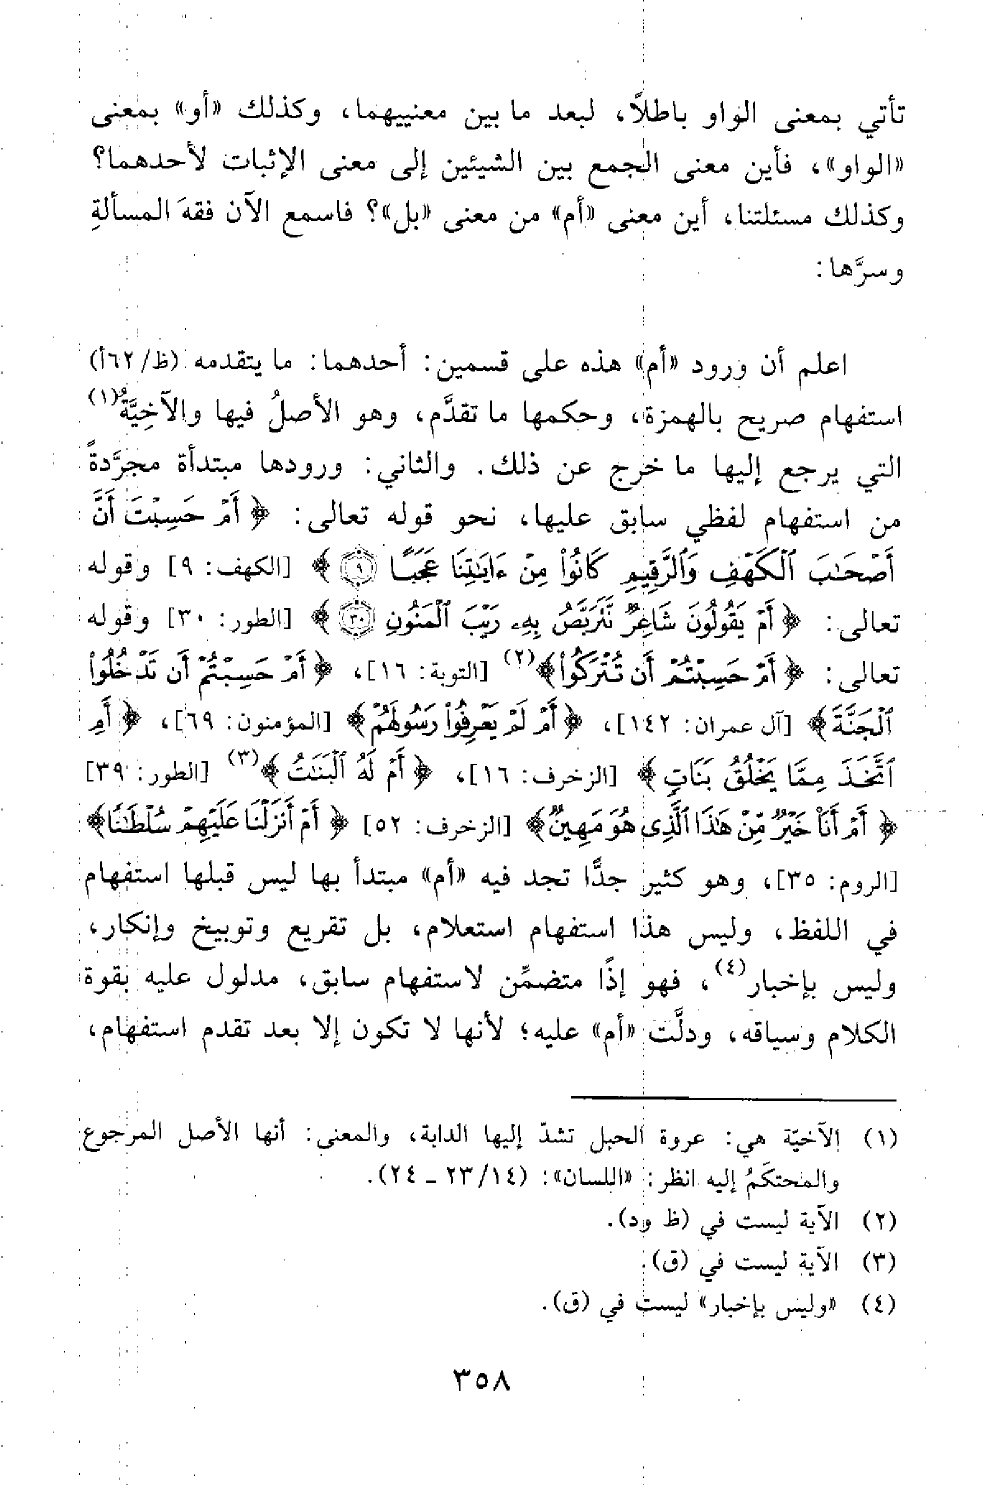 تأتي بمعنى الواو باطلاً، لبعد ما بين معنييهما، وكذلك «أو» بمعنى
«الواو»، فأين معنى الجمع بين الشيئين إلى معنى الإثبات لأحدهما؟
وكذلك مسئلتنا، أين معنى «أم» من معنى «بل»؟ فاسمع الآن فقهَ المسألةِ
وسرَّها:
اعلم أن ورود «أم» هذه على قسمين: أحدهما: ما يتقدمه (ظ/٦٢أ)
استفهام صريح بالهمزة، وحكمها ما تقدَّم، وهو الأصلُ فيها والآخِيَّةُ(١)
التي يرجع إليها ما خرج عن ذلك. والثاني: ورودها مبتدأة مجرَّدةً
من استفهام لفظي سابق عليها، نحو قوله تعالى: ﴿أَمْ حَسِبْتَ أَنَّ
أَصْحَٰبَ ٱلْكَهْفِ وَٱلرَّقِيمِ كَانُوا۟ مِنْ ءَايَٰتِنَا عَجَبًا ۝٩﴾ [الكهف: ٩] وقوله
تعالى: ﴿أَمْ يَقُولُونَ شَاعِرٌ نَّتَرَبَّصُ بِهِۦ رَيْبَ ٱلْمَنُونِ ۝٣٠﴾ [الطور: ٣٠] وقوله
تعالى: ﴿أَمْ حَسِبْتُمْ أَن تُتْرَكُوا۟﴾(٢) [التوبة: ١٦]، ﴿أَمْ حَسِبْتُمْ أَن تَدْخُلُوا۟
ٱلْجَنَّةَ﴾ [آل عمران: ١٤٢]، ﴿أَمْ لَمْ يَعْرِفُوا۟ رَسُولَهُمْ﴾ [المؤمنون: ٦٩]، ﴿أَمِ
ٱتَّخَذَ مِمَّا يَخْلُقُ بَنَاتٍ﴾ [الزخرف: ١٦]، ﴿أَمْ لَهُ ٱلْبَنَٰتُ﴾(٣) [الطور: ٣٩]
﴿أَمْ أَنَا۠ خَيْرٌ مِّنْ هَٰذَا ٱلَّذِى هُوَ مَهِينٌ﴾ [الزخرف: ٥٢] ﴿أَمْ أَنزَلْنَا عَلَيْهِمْ سُلْطَٰنًا﴾
[الروم: ٣٥]، وهو كثير جدًّا تجد فيه «أم» مبتدأ بها ليس قبلها استفهام
في اللفظ، وليس هذا استفهام استعلام، بل تقريع وتوبيخ وإنكار،
وليس بإخبار(٤)، فهو إذًا متضمِّن لاستفهام سابق، مدلول عليه بقوة
الكلام وسياقه، ودلَّت «أم» عليه؛ لأنها لا تكون إلا بعد تقدم استفهام،
(١) الآخيّة هي: عروة الحبل تشدّ إليها الدابة، والمعنى: أنها الأصل المرجوع
والمحتكَمُ إليه انظر: «اللسان»: (١٤/ ٢٣ ـ ٢٤).
(٢) الآية ليست في (ظ ود).
(٣) الآية ليست في (ق).
(٤) «وليس بإخبار» ليست في (ق).
٣٥٨